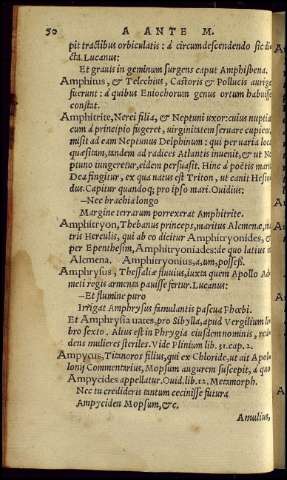 50 A ANTE M.
pit tractibus orbiculatis: à circumdescendendo sic di
cta. Lucanus:
Et grauis in geminum surgens caput Amphisbena.
Amphitus, & Telechius, Castoris & Pollucis aurigæ
fuerunt: à quibus Eniochorum genus ortum habuisse
constat.
Amphitrite, Nerei filia, & Neptuni uxor: cuius nuptias
cum à principio fugeret, uirginitatem seruare cupiens,
misit ad eam Neptunus Delphinum: qui per uaria loca
quæsitam, tandem ad radices Atlantis inuenit, & ut Ne
ptuno iungeretur, eidem persuasit. Hinc à poëtis maris
Dea fingitur, ex qua natus est Triton, ut canit Hesio
dus. Capitur quandoq; pro ipso mari. Ouidius:
—Nec brachia longo
Margine terrarum porrexerat Amphitrite.
Amphitryon, Thebanus princeps, maritus Alcmenæ, ma
tris Herculis, qui ab eo dicitur Amphitryonides, &
per Epenthesim, Amphitryoniades: de quo latius in
Alcmena. Amphitryonius, a, um, possess.
Amphrysus, Thessaliæ fluuius, iuxta quem Apollo Ad
meti regis armenta pauisse fertur. Lucanus:
—Et flumine puro
Irrigat Amphrysus famulantis pascua Phœbi.
Et Amphrysia uates, pro Sibylla, apud Vergilium li
bro sexto. Alius est in Phrygia eiusdem nominis, red
dens mulieres steriles. Vide Plinium lib. 31. cap. 2.
Ampycus, Titanoros filius, qui ex Chloride, ut ait Apol
lonij Commentarius, Mopsum augurem suscepit, à quo
Ampycides appellatur. Ouid. lib. 12. Metamorph.
Nec tu credideris tantum cecinisse futura
Ampyciden Mopsum, &c.
Amulius,